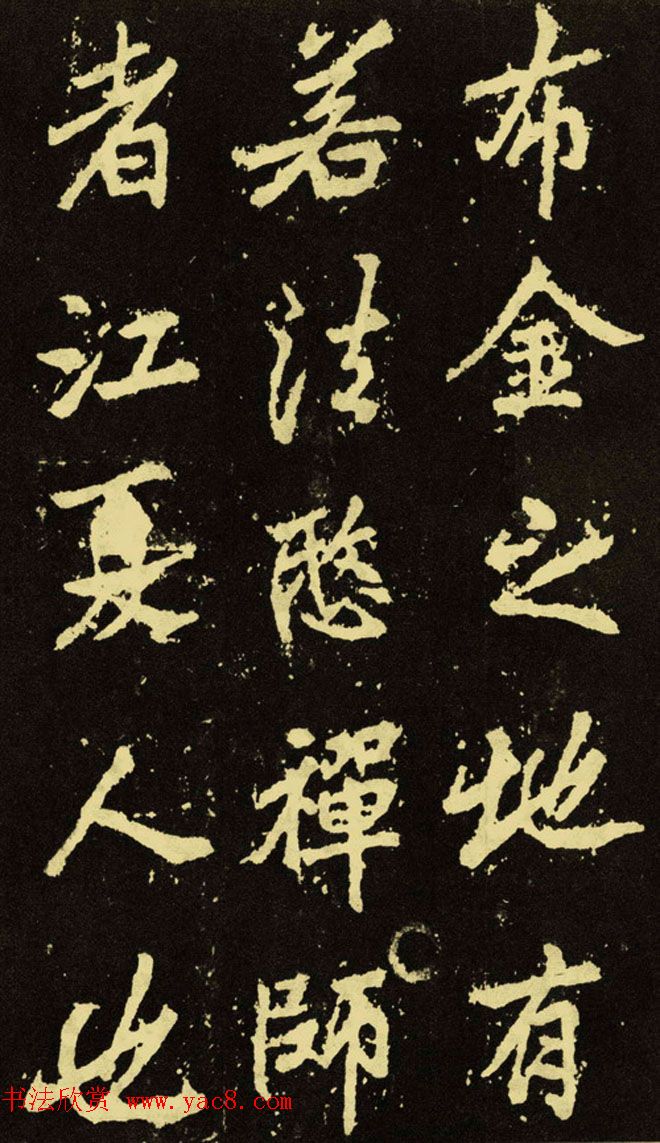 布金之地有
若法愍禪師
者江夏人也
书法欣赏 www.yac8.com